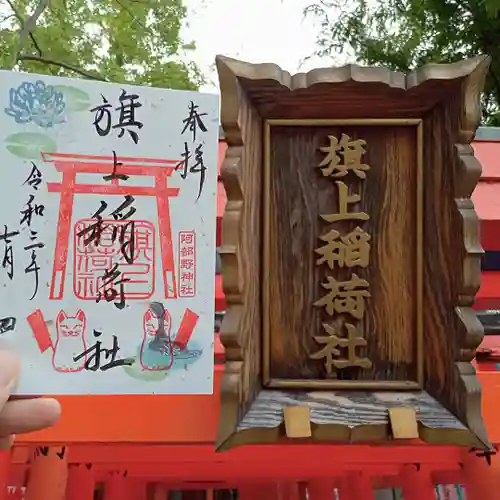 奉拝
旗上稲荷社
旗上
稲荷
阿部野神社
令和三年
七月
四
旗上稲荷社